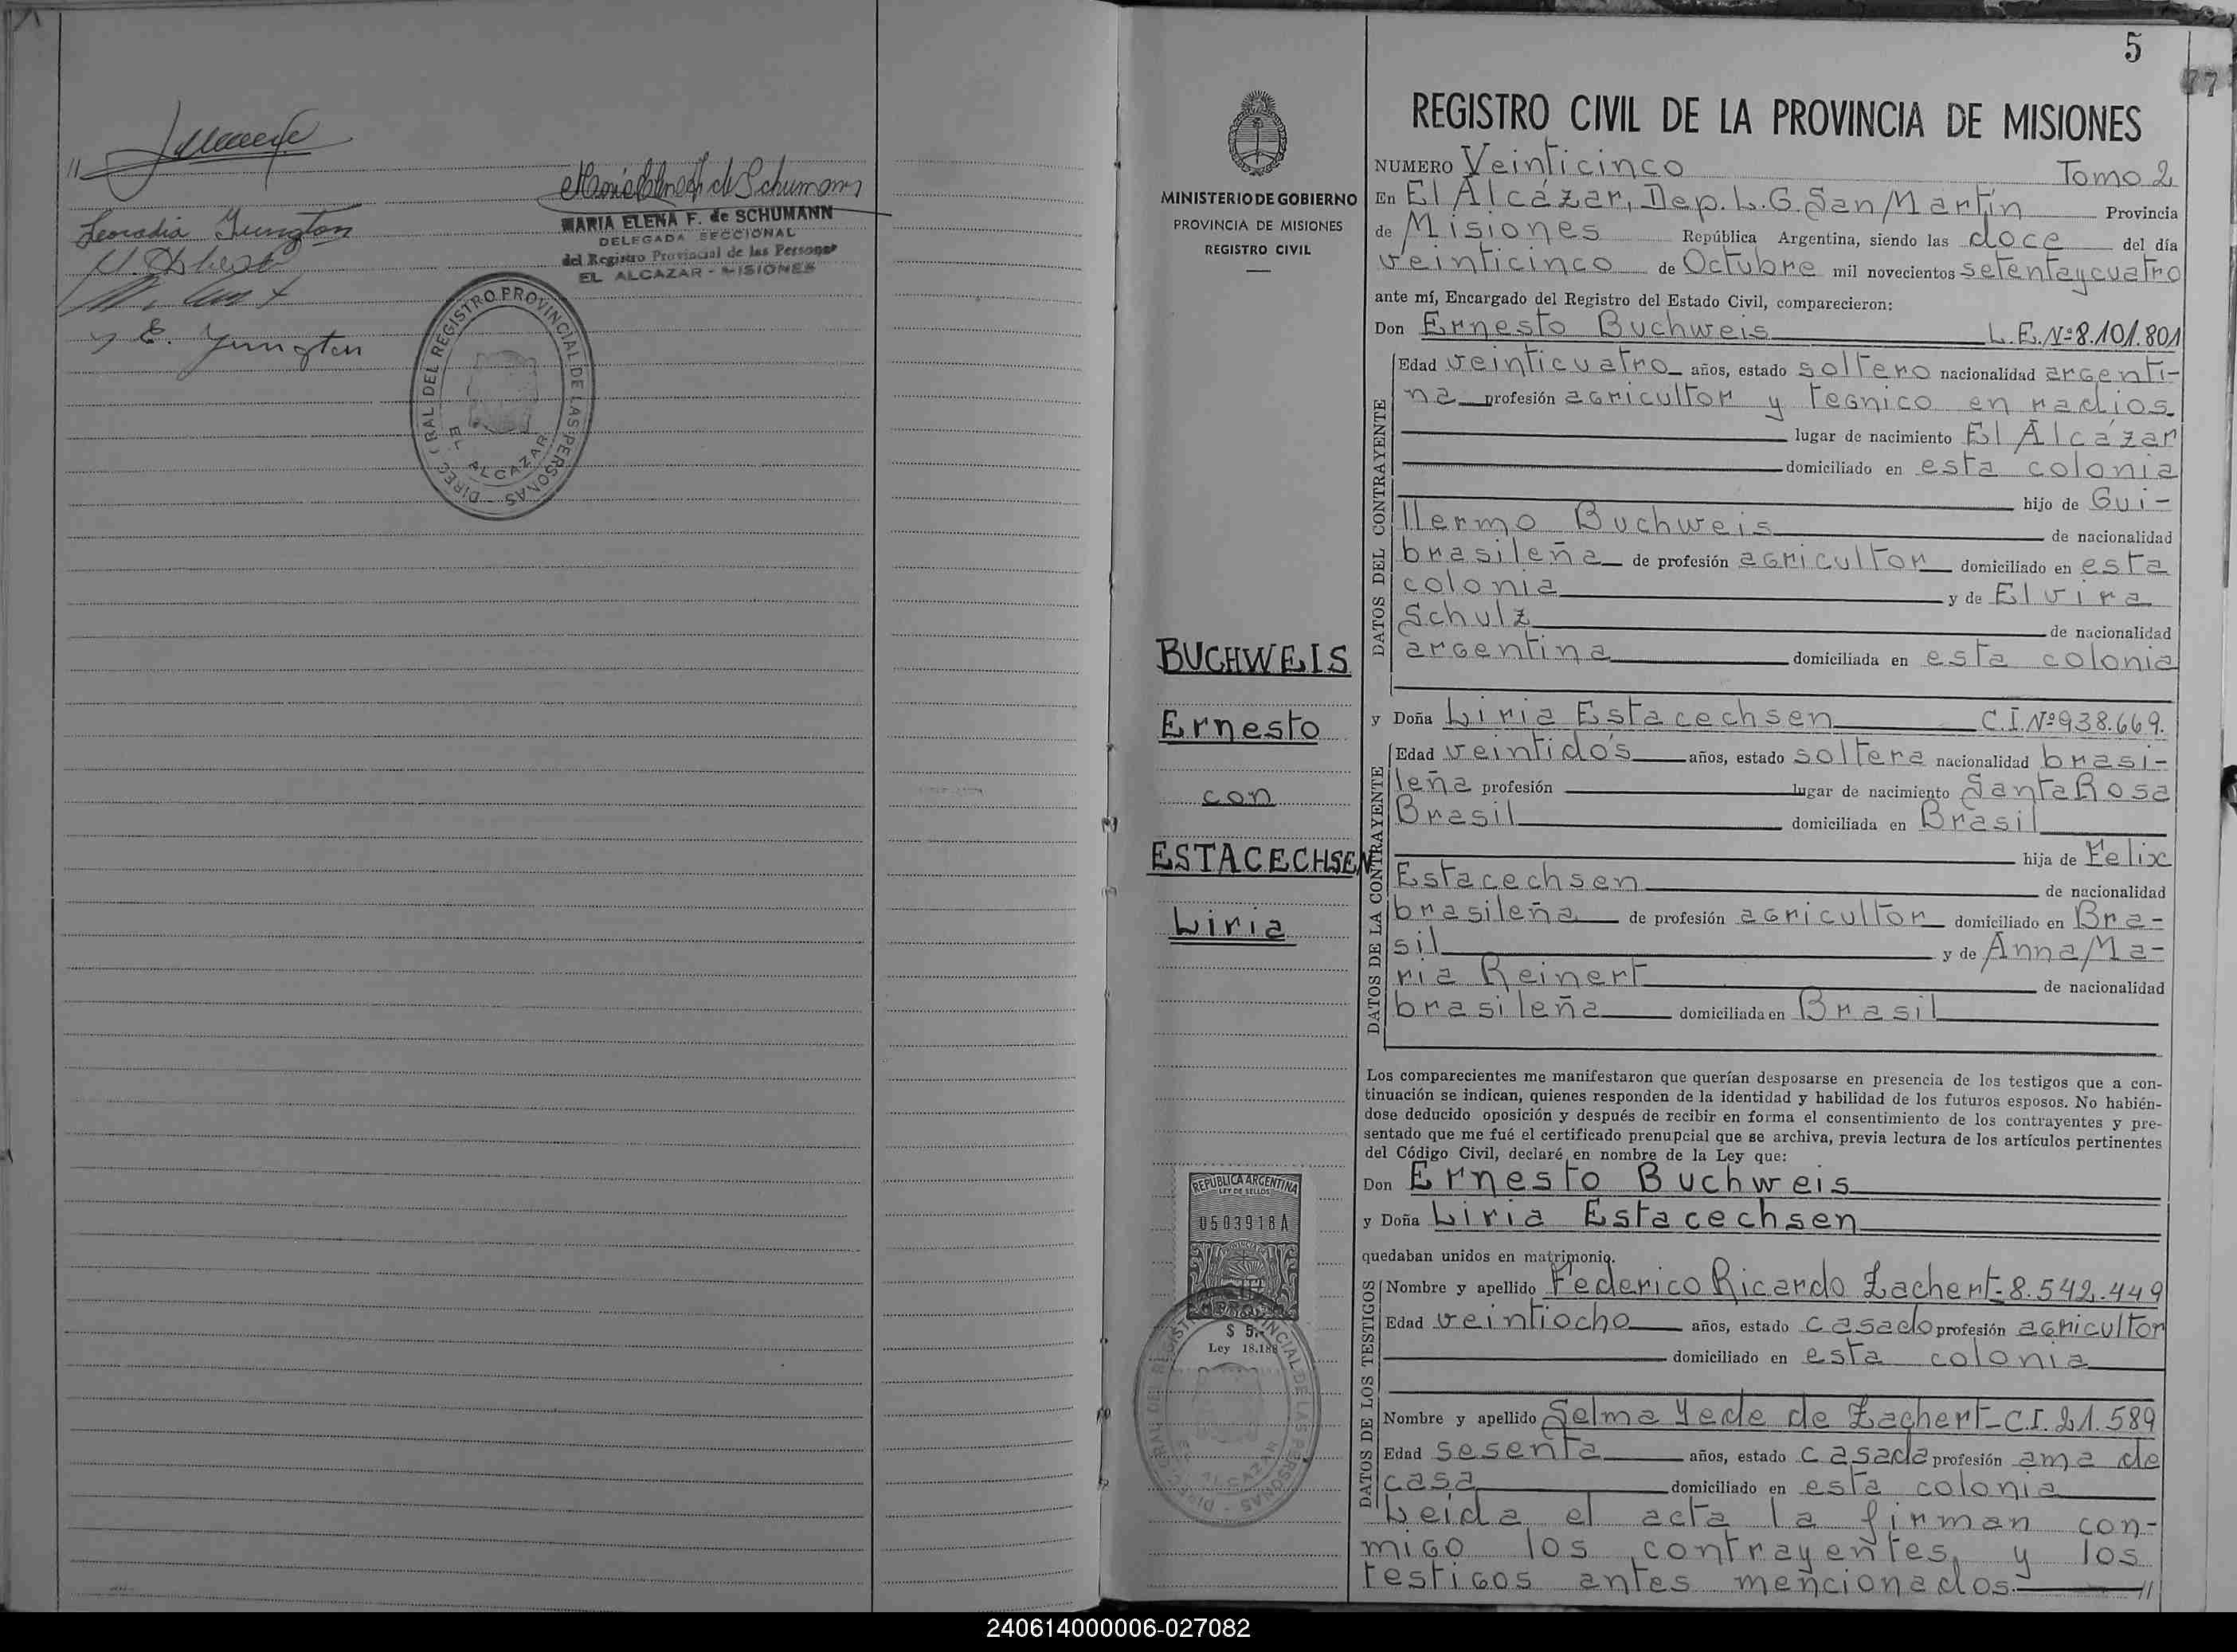 Leocadia Jungton
y E. Jungton
MARIA ELENA F. de SCHUMANN
DELEGADA SECCIONAL
del Registro Provincial de las Personas
EL ALCAZAR - MISIONES
DIREC. GRAL DEL REGISTRO PROVINCIAL DE LAS PERSONAS
EL ALCAZAR
5
77
MINISTERIO DE GOBIERNO
PROVINCIA DE MISIONES
REGISTRO CIVIL
BUCHWEIS
Ernesto
con
ESTACECHSEN
Liria
REPUBLICA ARGENTINA
LEY DE SELLOS
0503918A
$ 5.-
Ley 18.188
REGISTRO CIVIL DE LA PROVINCIA DE MISIONES
NUMERO Veinticinco Tomo 2
En El Alcázar, Dep. L.G. San Martín Provincia
de Misiones República Argentina, siendo las doce del día
veinticinco de Octubre mil novecientos setentaycuatro
ante mí, Encargado del Registro del Estado Civil, comparecieron:
Don Ernesto Buchweis L.E.Nº8.101.801
DATOS DEL CONTRAYENTE
Edad veinticuatro años, estado soltero nacionalidad argenti-
na profesión agricultor y tecnico en radios.
lugar de nacimiento El Alcázar
domiciliado en esta colonia
hijo de Gui-
llermo Buchweis de nacionalidad
brasileña de profesión agricultor domiciliado en esta
colonia y de Elvira
Schulz de nacionalidad
argentina domiciliada en esta colonia
y Doña Liria Estacechsen C.I.Nº938.669.
DATOS DE LA CONTRAYENTE
Edad veintidós años, estado soltera nacionalidad brasi-
leña profesión lugar de nacimiento Santa Rosa
Brasil domiciliada en Brasil
hija de Felix
Estacechsen de nacionalidad
brasileña de profesión agricultor domiciliado en Bra-
sil y de Anna Ma-
ria Reinert de nacionalidad
brasileña domiciliada en Brasil
Los comparecientes me manifestaron que querían desposarse en presencia de los testigos que a con-
tinuación se indican, quienes responden de la identidad y habilidad de los futuros esposos. No habién-
dose deducido oposición y después de recibir en forma el consentimiento de los contrayentes y pre-
sentado que me fué el certificado prenupcial que se archiva, previa lectura de los artículos pertinentes
del Código Civil, declaré en nombre de la Ley que:
Don Ernesto Buchweis
y Doña Liria Estacechsen
quedaban unidos en matrimonio.
DATOS DE LOS TESTIGOS
Nombre y apellido Federico Ricardo Zachert-8.542.449
Edad veintiocho años, estado casado profesión agricultor
domiciliado en esta colonia
Nombre y apellido Selma Yede de Zachert-C.I.21.589
Edad sesenta años, estado casada profesión ama de
casa domiciliado en esta colonia
Leida el acta la firman con-
migo los contrayentes, y los
testigos antes mencionados.-//
240614000006-027082